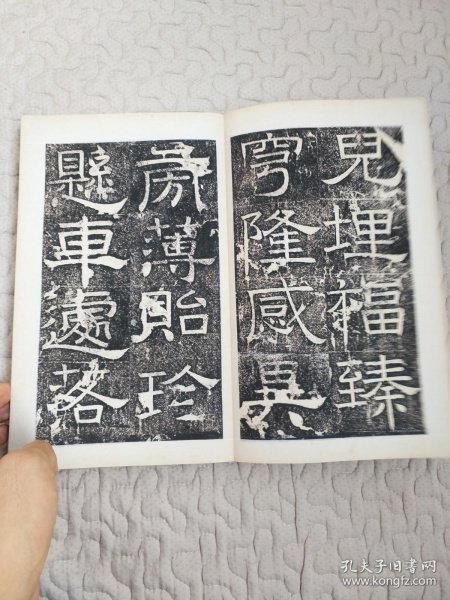 兒埋福臻
穹隆感異
旁薄貽珍
縣車遽落
孔夫子旧书网
www.kongfz.com